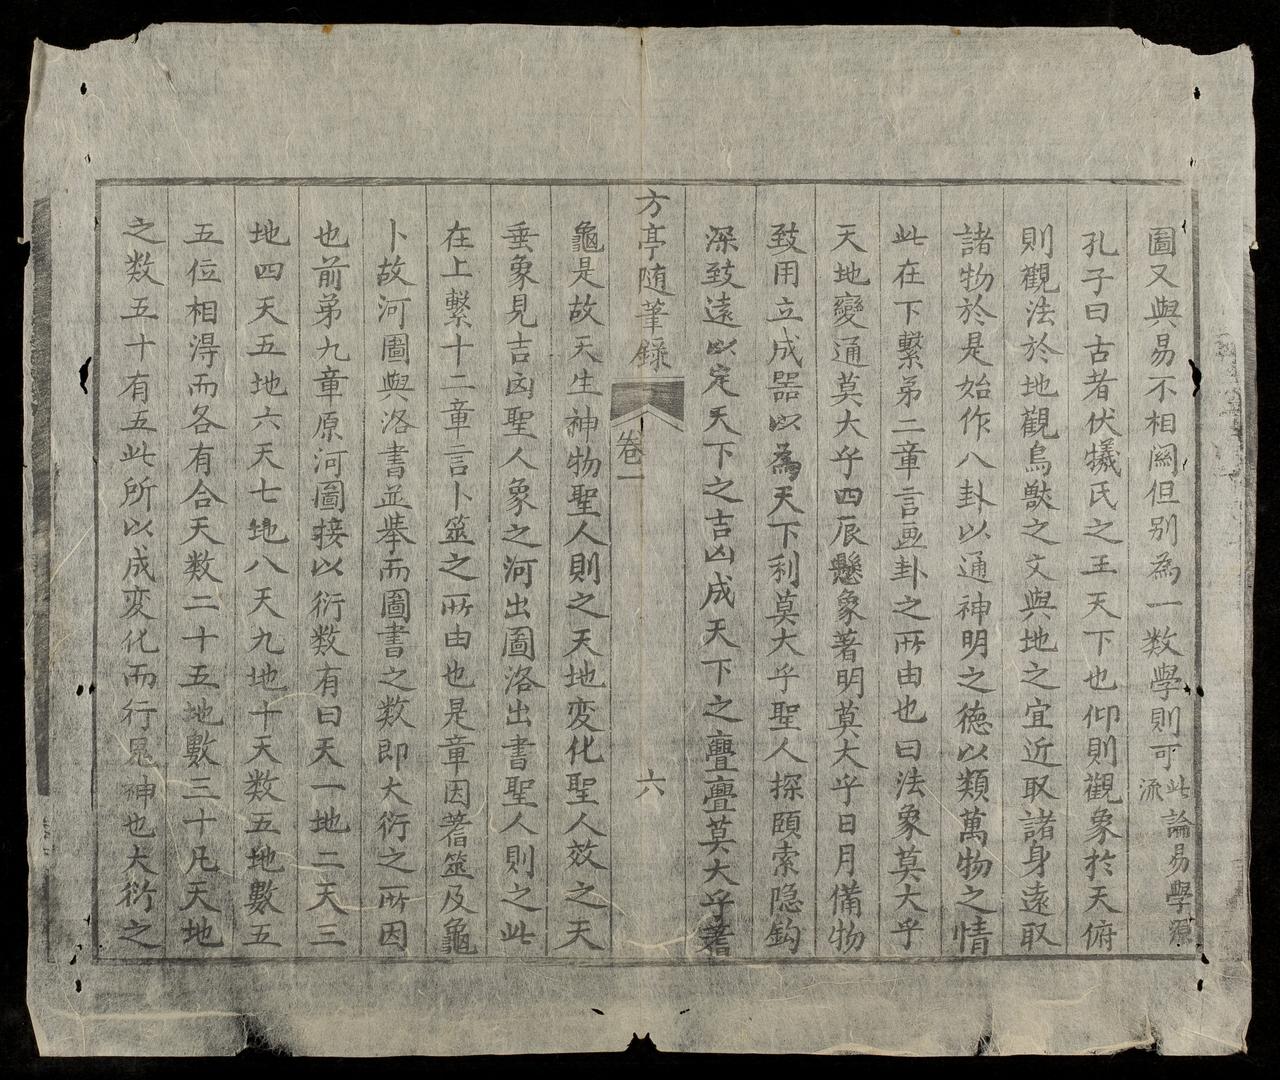 圖又與易不相關但别為一数學則可此論易學源流
孔子曰古者伏犧氏之王天下也仰則觀象於天俯
則觀法於地觀鳥獸之文與地之宜近取諸身遠取
諸物於是始作八卦以通神明之德以類萬物之情
此在下繫第二章言畫卦之所由也曰法象莫大乎
天地變通莫大乎四辰懸象著明莫大乎日月備物
致用立成器以為天下利莫大乎聖人探賾索隐鈎
深致遠以定天下之吉凶成天下之亹亹莫大乎蓍
方亭随筆錄
卷一
六
龜是故天生神物聖人則之天地变化聖人效之天
垂象見吉凶聖人象之河出圖洛出書聖人則之此
在上繫十二章言卜筮之所由也是章因蓍筮及龜
卜故河圖與洛書並舉而圖書之数即大衍之所因
也前第九章原河圖接以衍数有曰天一地二天三
地四天五地六天七地八天九地十天数五地數五
五位相得而各有合天数二十五地數三十凡天地
之数五十有五此所以成变化而行鬼神也大衍之